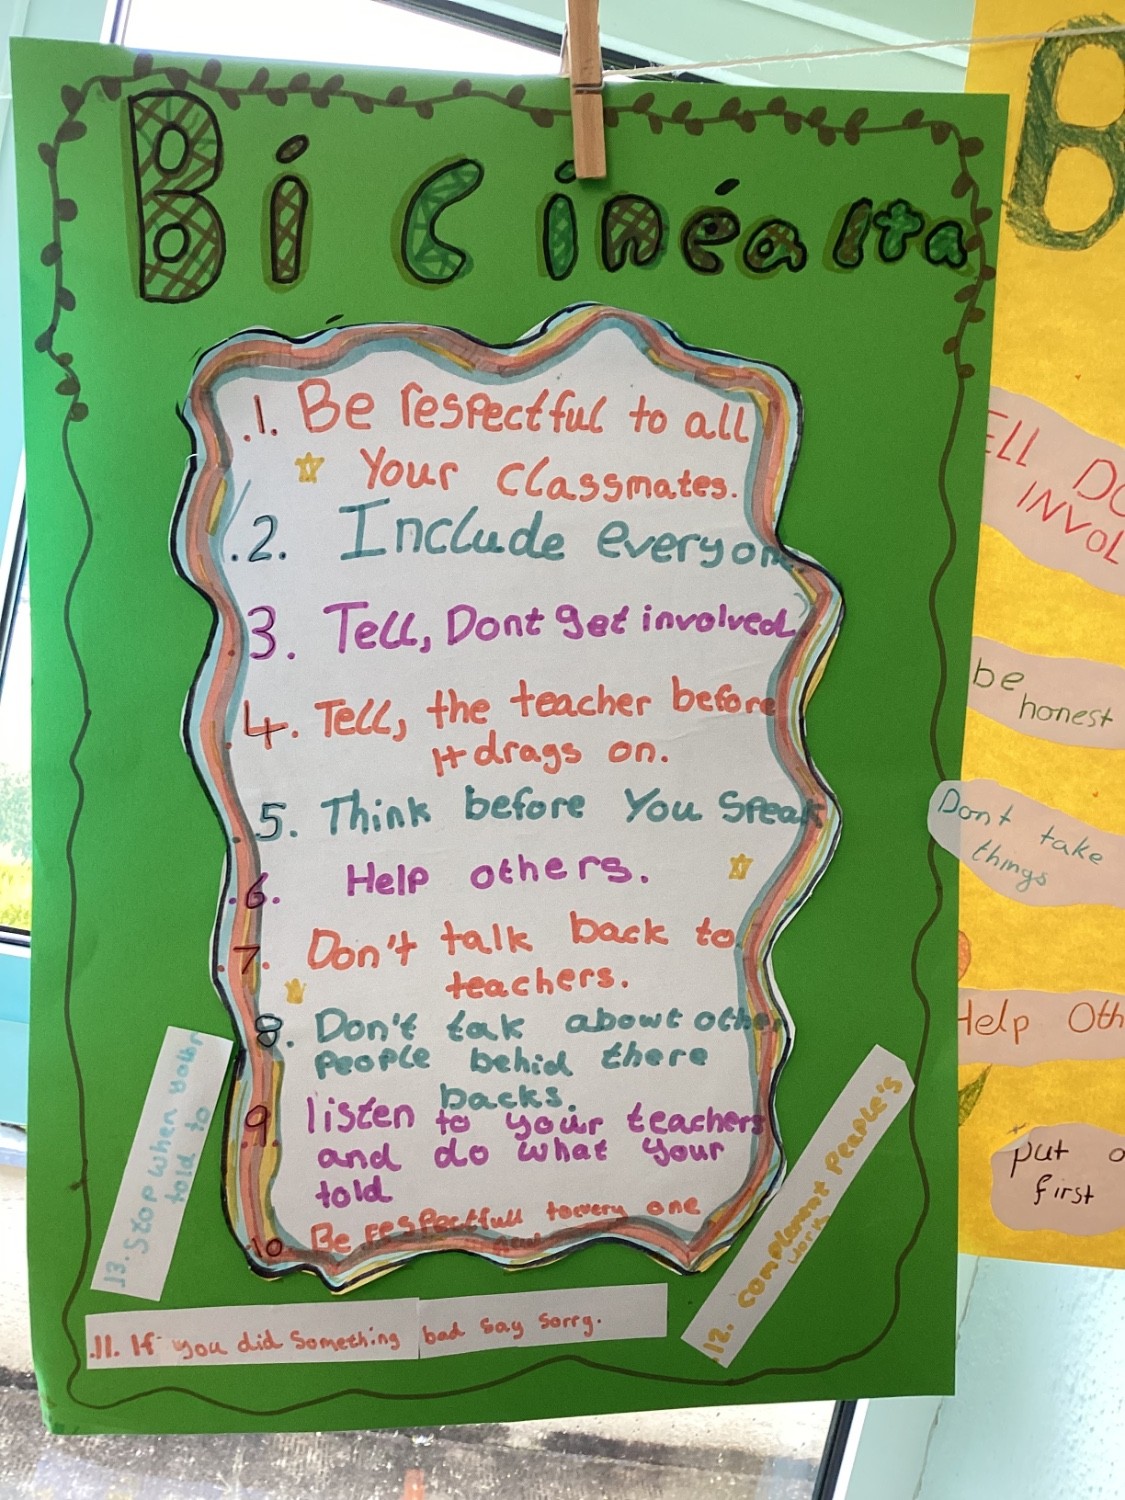 Bí Cineálta
.1. Be respectful to all
Your classmates.
.2. Include everyone.
3. Tell, Dont get involved.
4. Tell, the teacher before
It drags on.
5. Think before You Speak
.6. Help others.
.7. Don't talk back to
teachers.
8. Don't tak abowt other
people behid there
backs.
9. listen to your teachers
and do what your
told
10. Be respectfull to every one
.11. If you did something bad say sorry.
.12. complemnt People's
work
13. Stop when your
told to
B
ELL DO
INVOL
be
honest
Dont take
things
Help Oth
put o
first